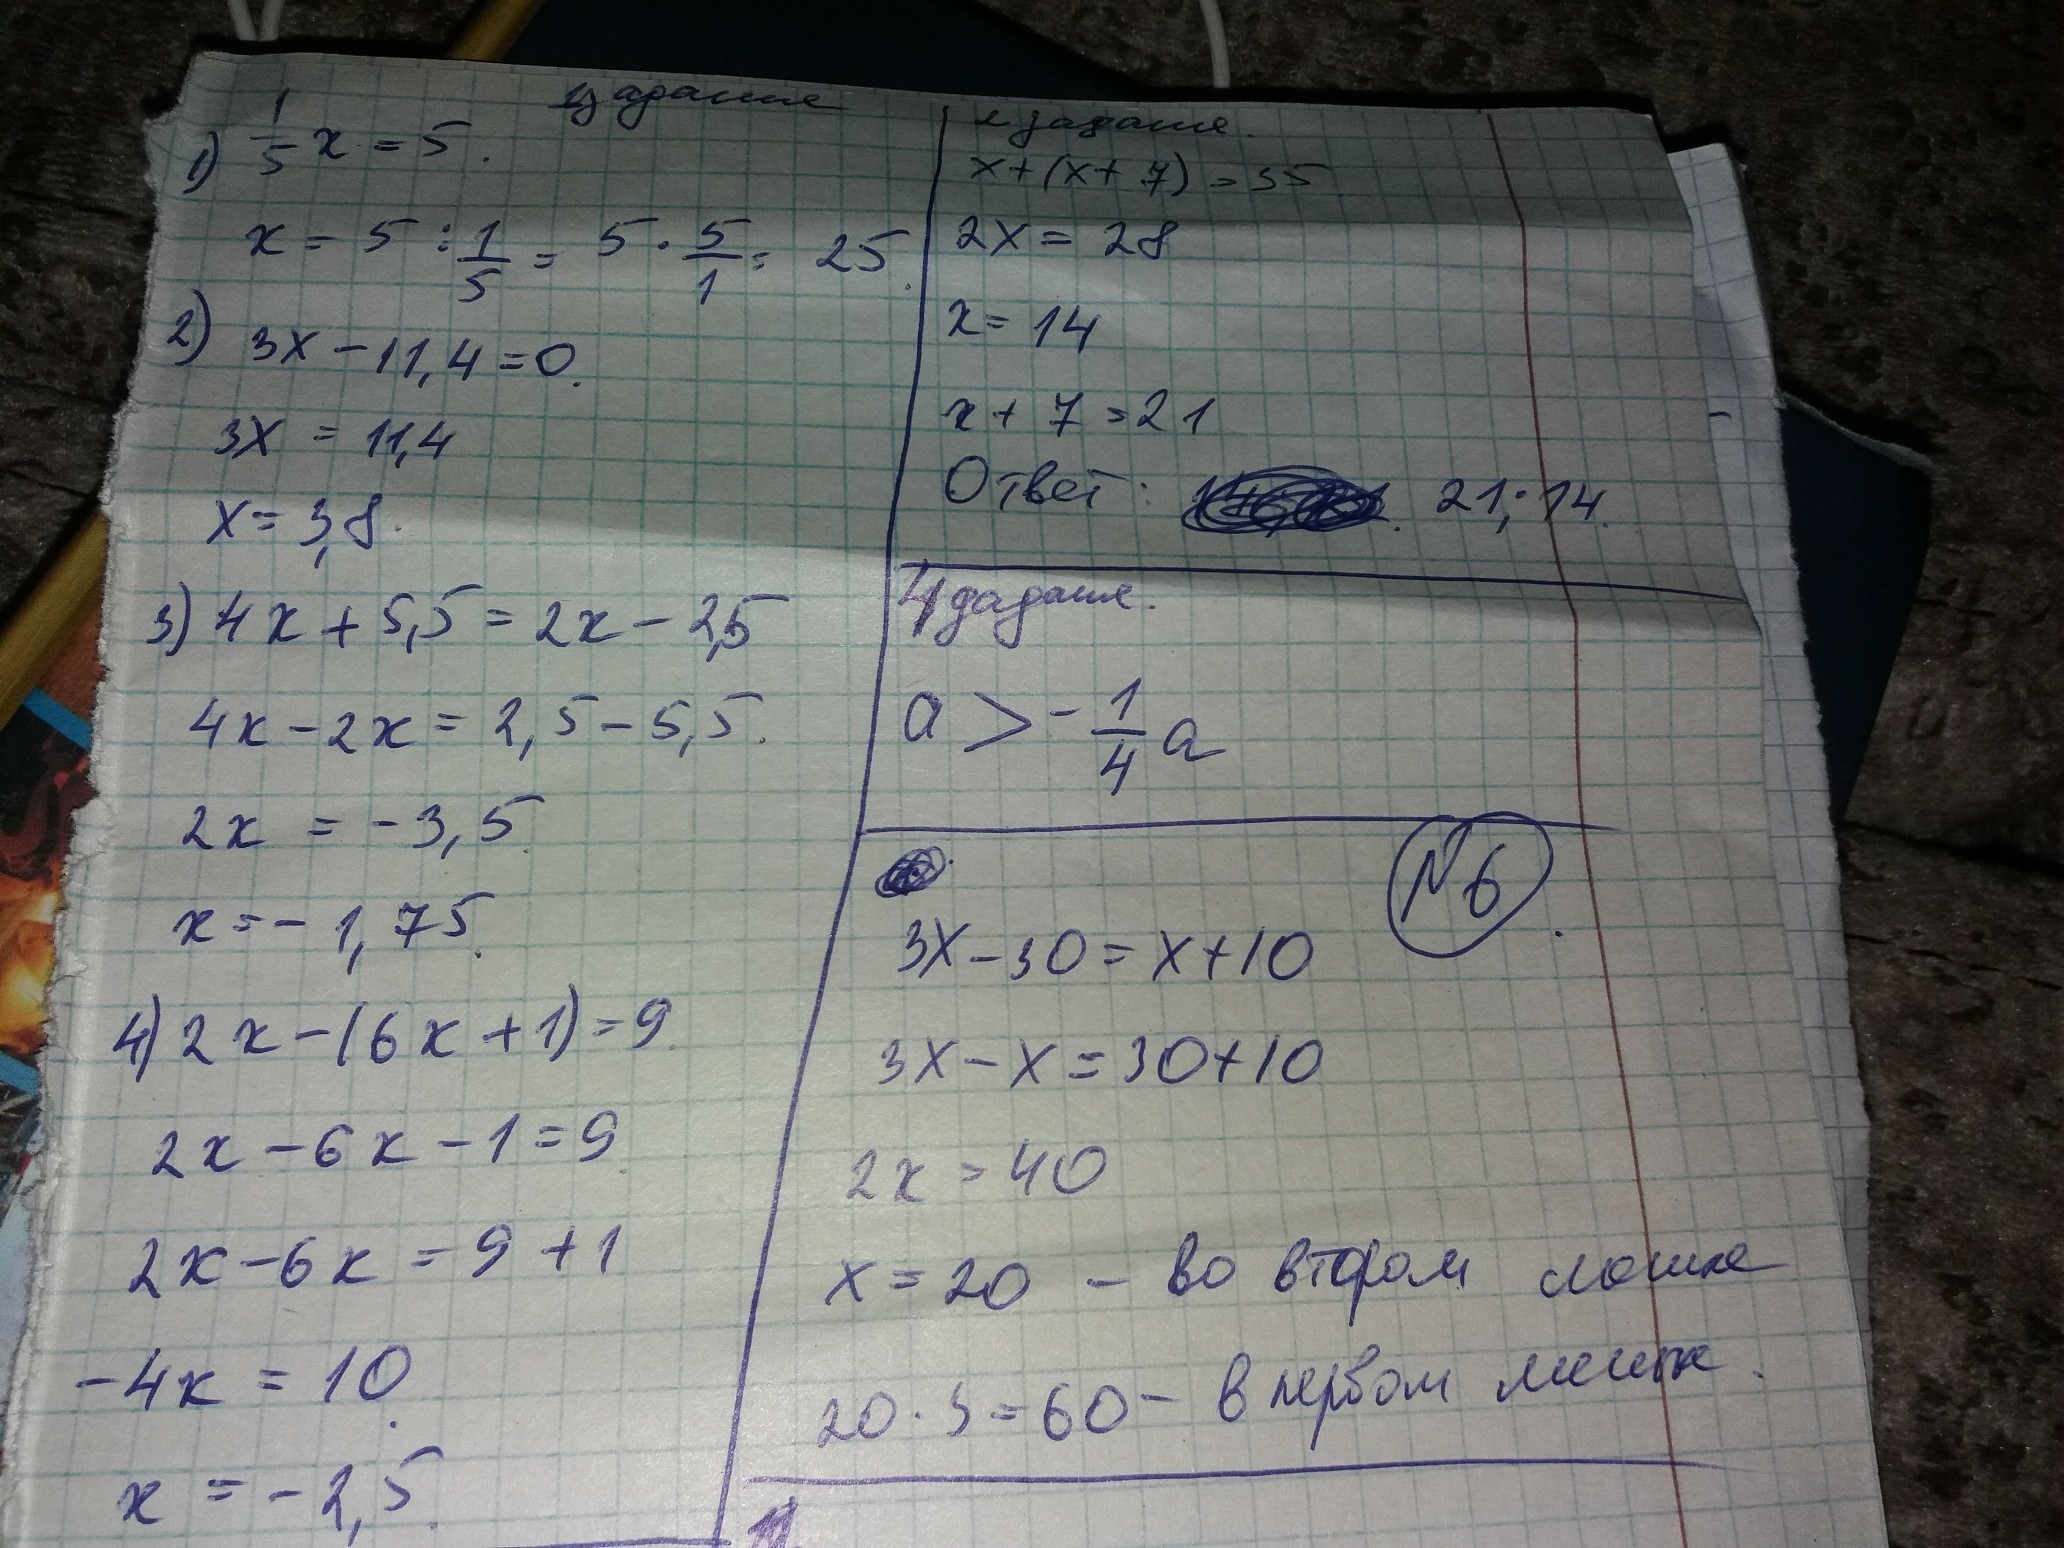 1 задание
1) 1/5 x = 5.
x = 5 : 1/5 = 5 · 5/1 = 25.
2) 3x - 11,4 = 0.
3x = 11,4
x = 3,8.
3) 4x + 5,5 = 2x - 2,5
4x - 2x = 2,5 - 5,5.
2x = -3,5.
x = -1,75.
4) 2x - (6x + 1) = 9.
2x - 6x - 1 = 9.
2x - 6x = 9 + 1
-4x = 10.
x = -2,5.
задание.
x + (x + 7) = 35
2x = 28
x = 14
x + 7 = 21
Ответ: 21; 14.
4 задание.
a > -1/4 a
№6.
3x - 30 = x + 10
3x - x = 30 + 10
2x = 40
x = 20 - во втором мешке
20 · 3 = 60 - в первом мешке.